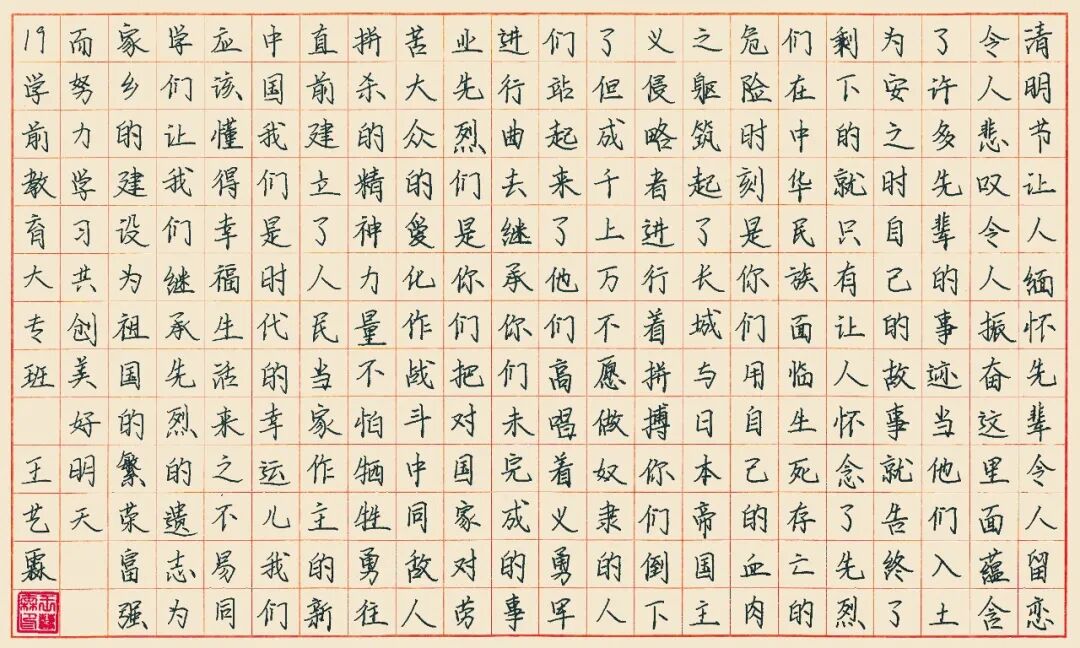 清明节让人缅怀先辈令人留恋
令人悲叹令人振奋这里面蕴含
了许多先辈的事迹当他们入土
为安之时自己的故事就告终了
剩下的就只有让人怀念了先烈
们在中华民族面临生死存亡的
危险时刻是你们用自己的血肉
之躯筑起了长城与日本帝国主
义侵略者进行着拼搏你们倒下
了但成千上万不愿做奴隶的人
们站起来了他们高唱着义勇军
进行曲去继承你们未完成的事
业先烈们是你们把对国家对劳
苦大众的爱化作战斗中同敌人
拼杀的精神力量不怕牺牲勇往
直前建立了人民当家作主的新
中国我们是时代的幸运儿我们
应该懂得幸福生活来之不易同
学们让我们继承先烈的遗志为
家乡的建设为祖国的繁荣富强
而努力学习共创美好明天
19学前教育大专班 王艺霖